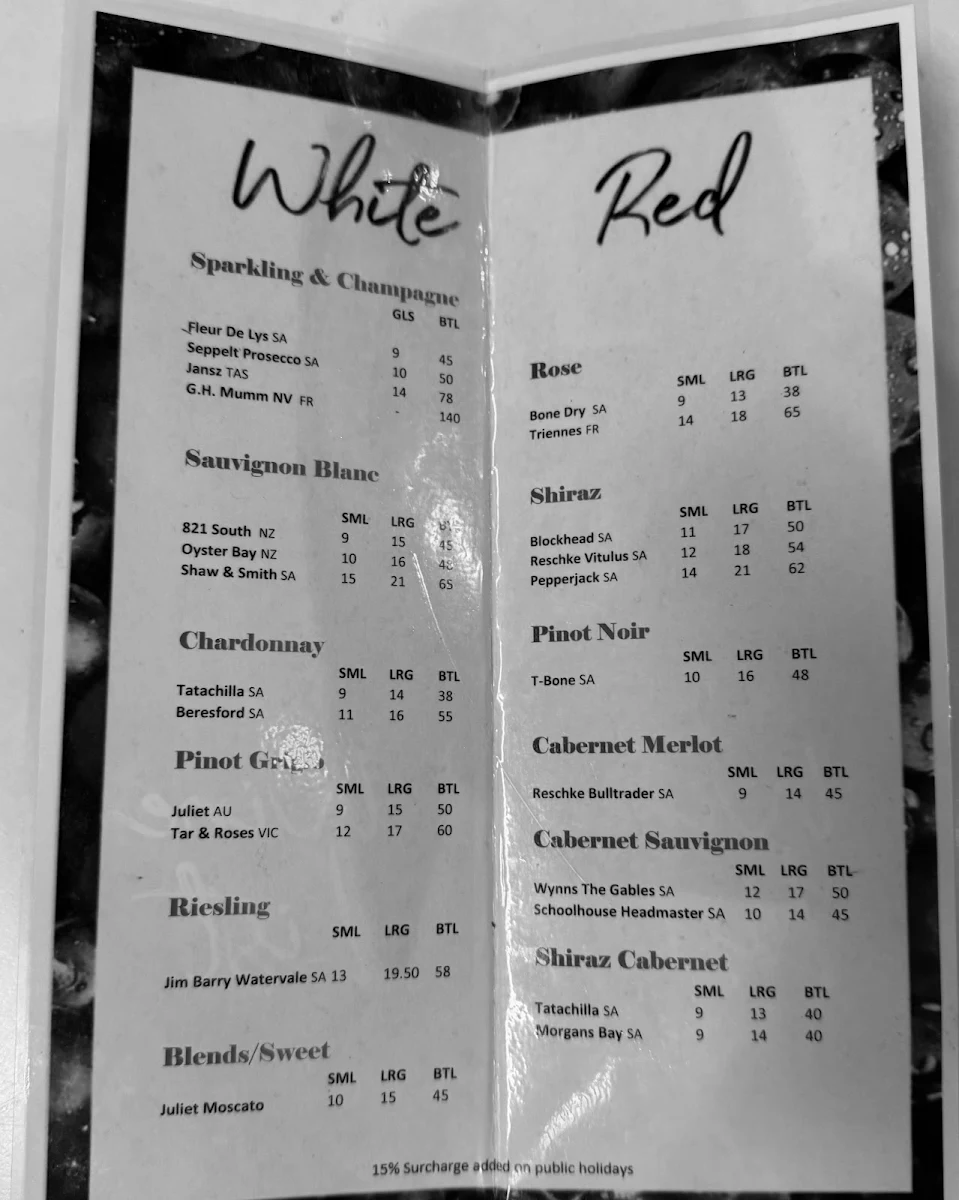 White
Sparkling & Champagne
GLS BTL
Fleur De Lys SA 9 45
Seppelt Prosecco SA 10 50
Jansz TAS 14 78
G.H. Mumm NV FR - 140
Sauvignon Blanc
SML LRG
821 South NZ 9 15 45
Oyster Bay NZ 10 16 48
Shaw & Smith SA 15 21 65
Chardonnay
SML LRG BTL
Tatachilla SA 9 14 38
Beresford SA 11 16 55
Pinot Grigio
SML LRG BTL
Juliet AU 9 15 50
Tar & Roses VIC 12 17 60
Riesling
SML LRG BTL
Jim Barry Watervale SA 13 19.50 58
Blends/Sweet
SML LRG BTL
Juliet Moscato 10 15 45
Red
Rose
SML LRG BTL
Bone Dry SA 9 13 38
Triennes FR 14 18 65
Shiraz
SML LRG BTL
Blockhead SA 11 17 50
Reschke Vitulus SA 12 18 54
Pepperjack SA 14 21 62
Pinot Noir
SML LRG BTL
T-Bone SA 10 16 48
Cabernet Merlot
SML LRG BTL
Reschke Bulltrader SA 9 14 45
Cabernet Sauvignon
SML LRG BTL
Wynns The Gables SA 12 17 50
Schoolhouse Headmaster SA 10 14 45
Shiraz Cabernet
SML LRG BTL
Tatachilla SA 9 13 40
Morgans Bay SA 9 14 40
15% Surcharge added on public holidays